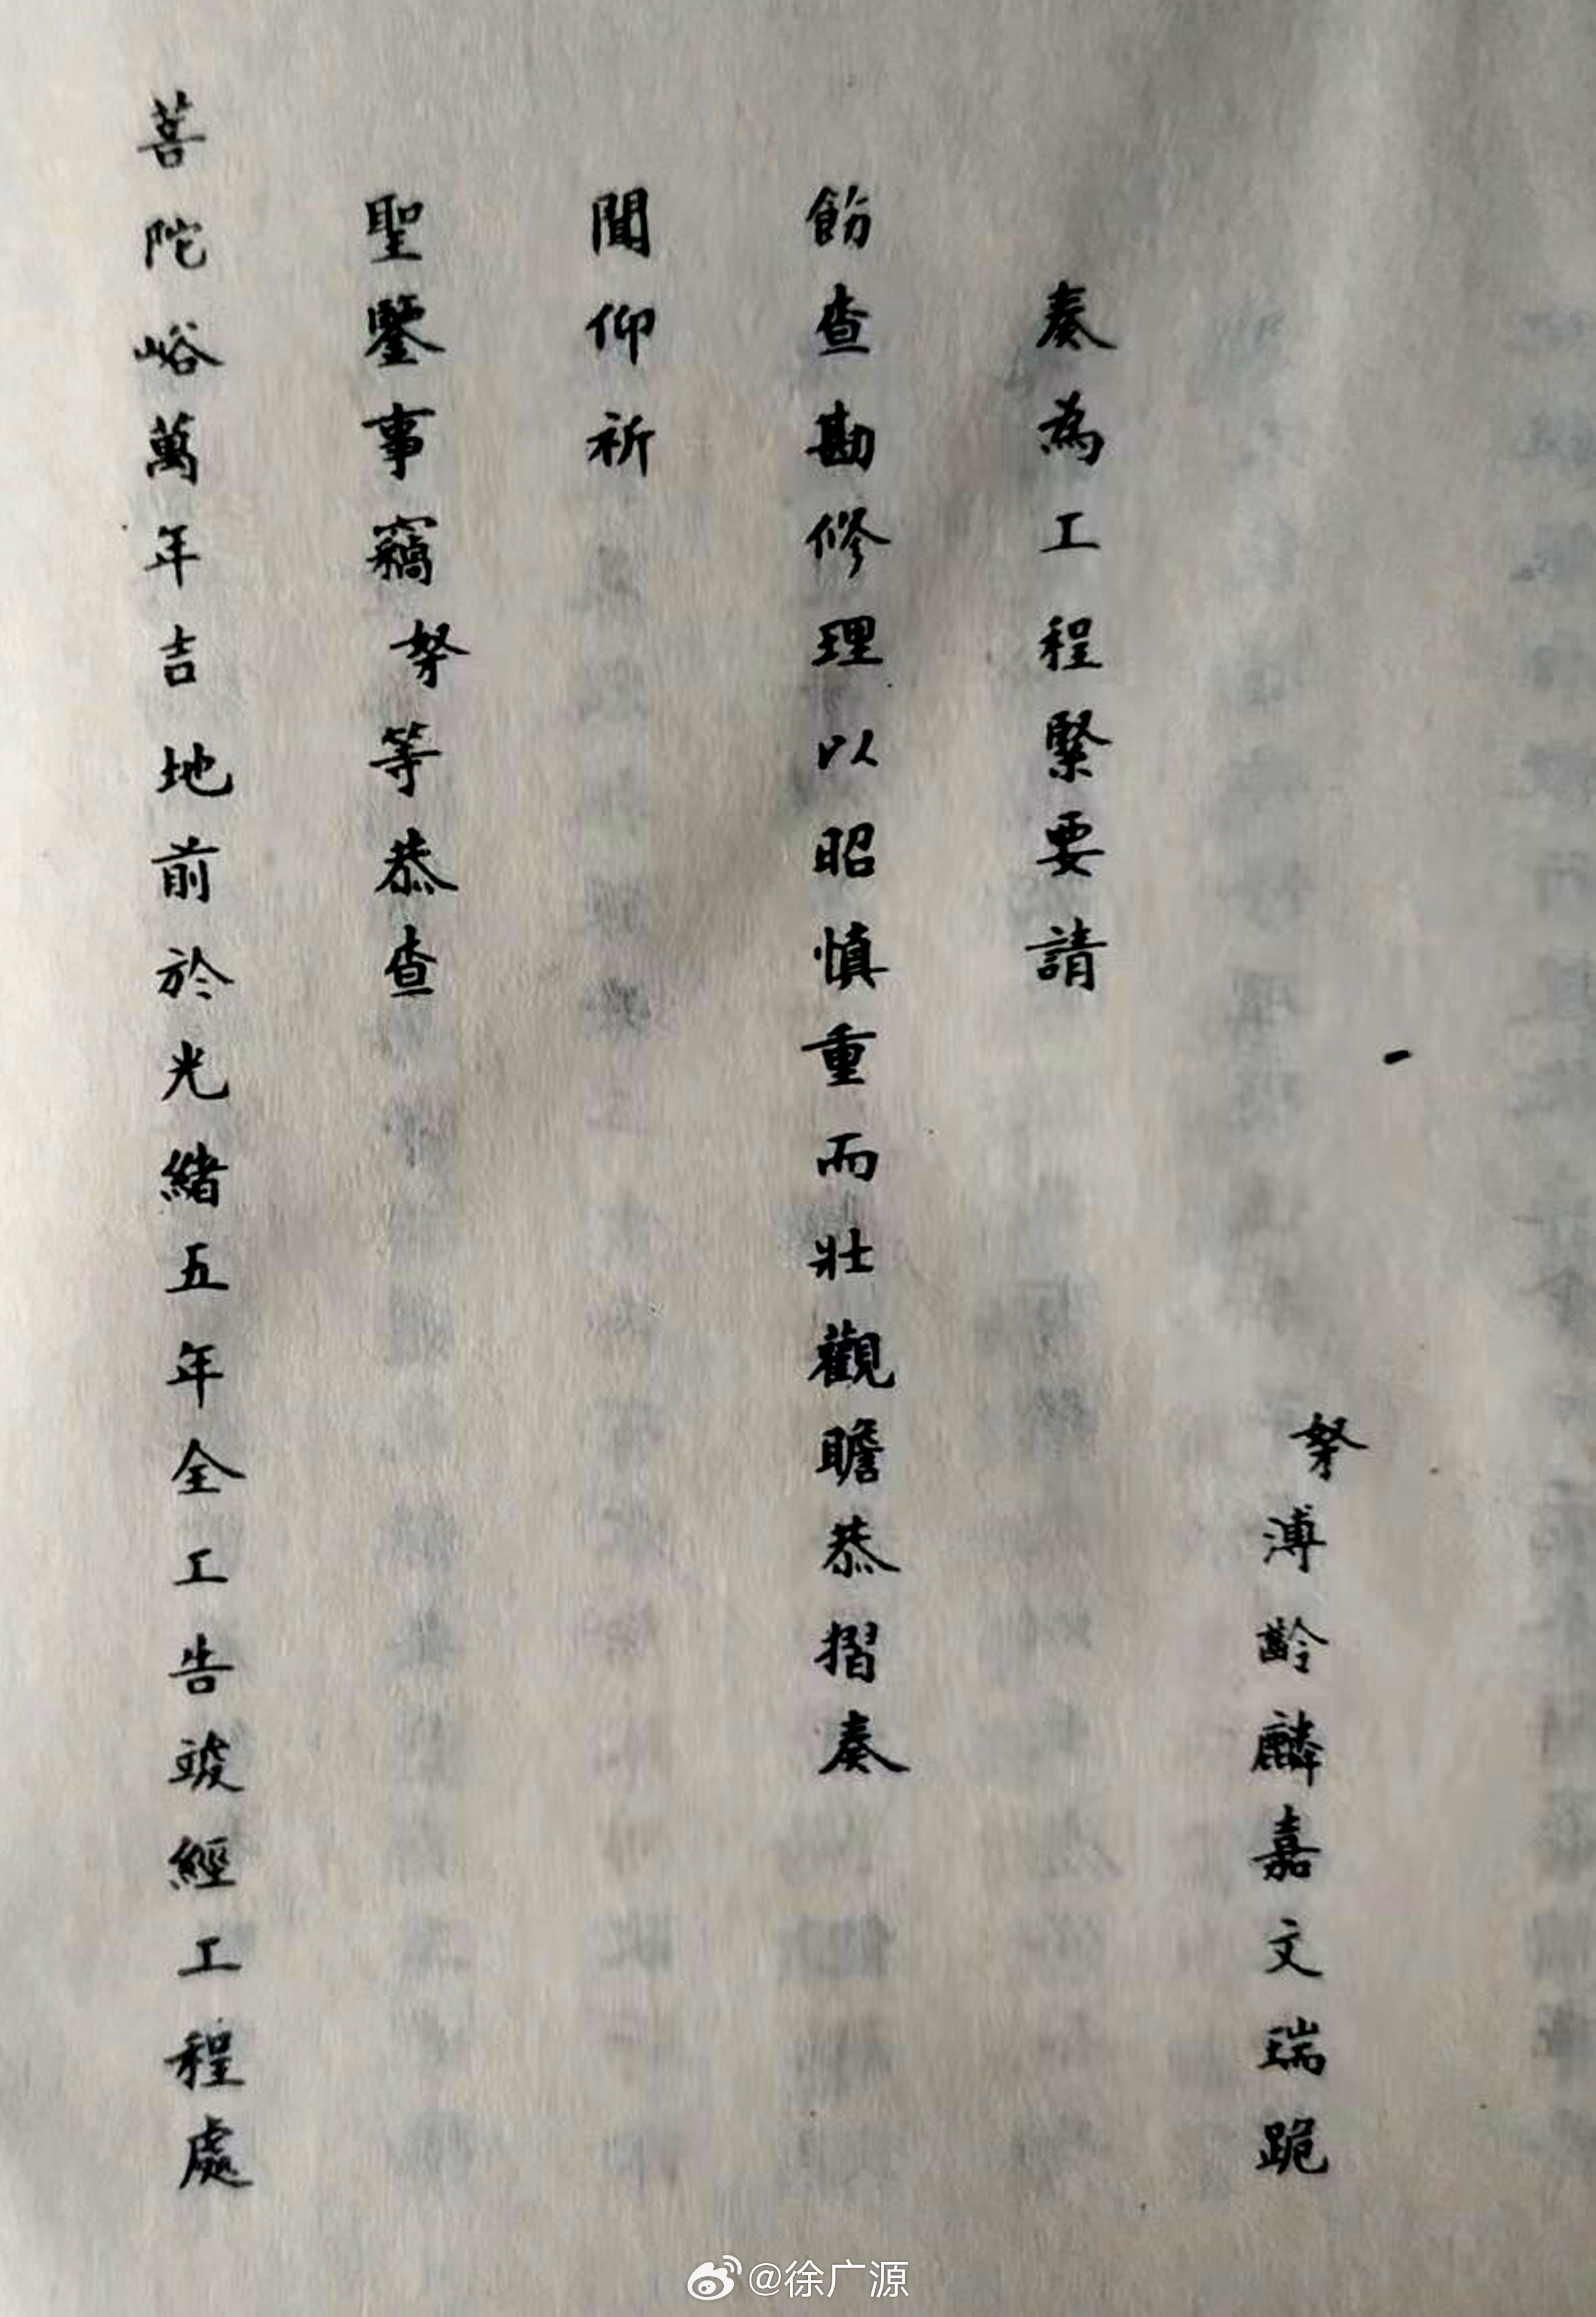 奴才溥齡麟嘉文瑞跪
奏為工程緊要請
飭查勘修理以昭慎重而壯觀瞻恭摺奏
聞仰祈
聖鑒事竊奴才等恭查
菩陀峪萬年吉地前於光緒五年全工告竣經工程處
@徐广源